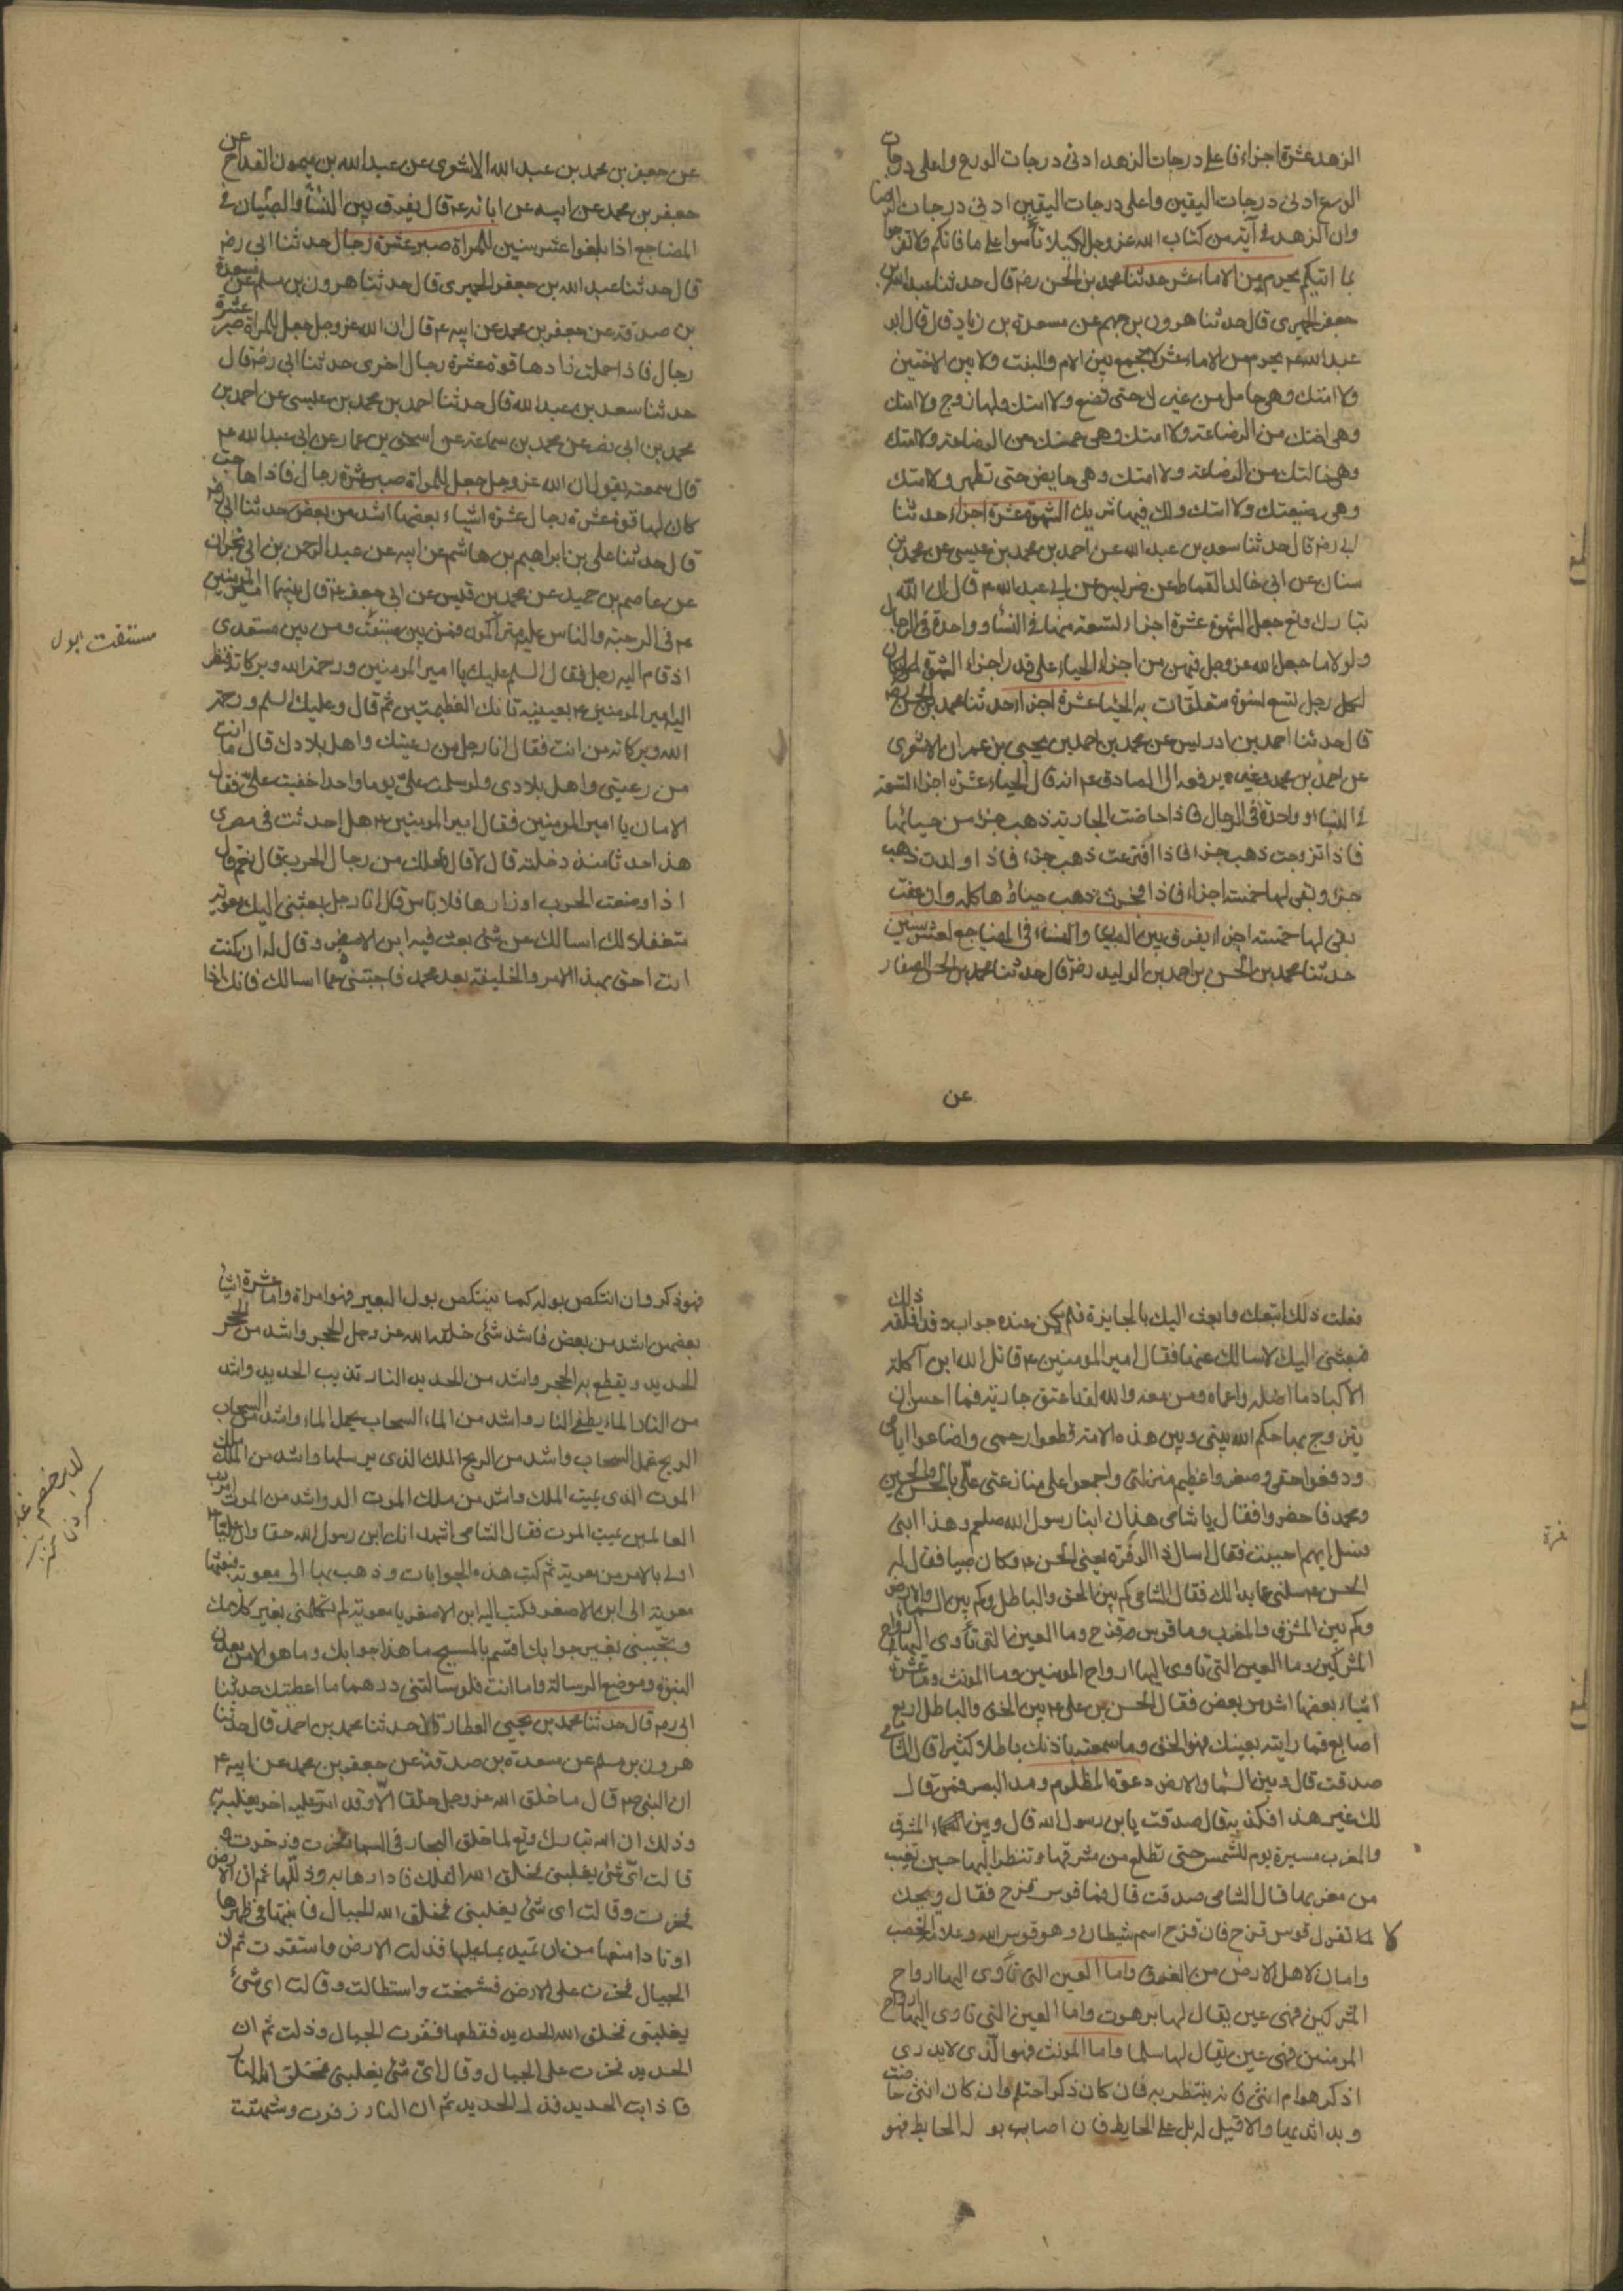 الزهد عشرة اجزاء فاعلى درجات الزهد ادنى درجات الورع واعلى درجات
الورع ادنى درجات اليقين واعلى درجات اليقين ادنى درجات الرضا
وان الزهد في آية من كتاب الله عز وجل لكيلا تأسوا على ما فاتكم ولا تفرحوا
بما اتيكم يحرم من الاماء عشر حدثنا محمد بن الحسن رضه قال حدثنا عبد الله بن
جعفر الحميرى قال حدثنا هرون بن عن مسعدة بن زياد قال قال ابو
عبد الله ع يحرم من الاماء عشر لا يجمع بين الام والبنت ولا بين الاختين
ولا امتك وهى حامل من غيرك حتى تضع ولا امتك ولها زوج ولا امتك
وهى اختك من الرضاعة ولا امتك وهى عمتك من الرضاعة ولا امتك
وهى خالتك من الرضاعة ولا امتك وهى حايض حتى تطهر ولا امتك
وهى رضيعتك ولا امتك ولك فيها شريك الشهوة عشرة اجزاء حدثنا
ابى رضه قال حدثنا سعد بن عبد الله عن احمد بن محمد بن عيسى عن محمد بن
سنان عن ابى خالد القماط عن ضريس عن ابى عبد الله ع قال ان الله
تبارك وتع جعل الشهوة عشرة اجزاء تسعة منها في النساء وواحدة في الرجال
ولولا ما جعل الله عز وجل فيهن من اجزاء الحياء على قدر اجزاء الشهوة لكان
لكل رجل تسع نسوة متعلقات به الحياء عشرة اجزاء حدثنا محمد بن الحسن رضه
قال حدثنا احمد بن ادريس عن محمد بن احمد بن يحيى بن عمران الاشعرى
عن احمد بن محمد وغيره يرفعه الى الصادق ع انه قال الحياء عشرة اجزاء تسعة
في النساء وواحدة في الرجال فاذا حاضت الجارية ذهب جزء من حيائها
فاذا تزوجت ذهب جزء فاذا افترعت ذهب جزء فاذا ولدت ذهب
جزء وبقى لها خمسة اجزاء فاذا فجرت ذهب حياؤها كله وان عفت
بقى لها خمسة اجزاء يفرق بين الصبيان والنساء في المضاجع لعشر سنين
حدثنا محمد بن الحسن بن احمد بن الوليد رضه قال حدثنا محمد بن الحسن الصفار
عن
عن جعفر بن محمد بن عبد الله الاشعرى عن عبد الله بن ميمون القداح عن
جعفر بن محمد عن ابيه عن ابائه ع قال يفرق بين النساء والصبيان في
المضاجع اذا بلغوا عشر سنين للمراة صبر عشرة رجال حدثنا ابى رضه
قال حدثنا عبد الله بن جعفر الحميرى قال حدثنا هرون بن مسلم عن مسعدة
بن صدقة عن جعفر بن محمد عن ابيه ع قال ان الله عز وجل جعل للمراة صبر عشرة
رجال فاذا حملت زادها قوة عشرة رجال اخرى حدثنا ابى رضه قال
حدثنا سعد بن عبد الله قال حدثنا احمد بن محمد بن عيسى عن احمد بن
محمد بن ابى نصر عن محمد بن سماعة عن اسحق بن عمار عن ابى عبد الله ع
قال سمعته يقول ان الله عز وجل جعل للمراة صبر عشرة رجال فاذا هاجت
كان لها قوة عشرة رجال عشرة اشياء بعضها اشد من بعض حدثنا ابى رضه
قال حدثنا على بن ابراهيم بن هاشم عن ابيه عن عبد الرحمن بن ابى نجران
عن عاصم بن حميد عن محمد بن قيس عن ابى جعفر ع قال بينما امير المومنين
ع في الرحبة والناس عليه متراكمون فمن بين مستفت ومن بين مستعدى
اذ قام اليه رجل فقال السلم عليك يا امير المومنين ورحمة الله وبركاته فنظر
اليه امير المومنين ع بعينيه تانك العظيمتين ثم قال وعليك السلم ورحمة
الله وبركاته من انت فقال انا رجل من رعيتك واهل بلادك قال ما انت
من رعيتى واهل بلادى ولو سلمت على يوما واحدا خفيت على فقال
الامان يا امير المومنين فقال امير المومنين ع هل احدثت في مصرى
هذا حدثا منذ دخلته قال لا قال فلعلك من رجال الحرب قال نعم قال
اذا وضعت الحرب اوزارها فلا باس قال انا رجل بعثنى اليك معوية
متغفلا لك اسالك عن شئ بعث فيه ابن الاصفر وقال له ان كنت
انت احق بهذا الامر والخليفة بعد محمد فاجبنى عما اسالك فانك اذا
مستفت
فعلت ذلك اتبعتك وابعث اليك بالجايزة فلم يكن عنده جواب وقد اقلقه ذلك
فبعثنى اليك لاسالك عنها فقال امير المومنين ع قاتل الله ابن آكلة
الاكباد ما اضله واعماه ومن معه والله لقد اعتق جارية فما احسن ان
يتزوج بها حكم الله بينى وبين هذه الامة قطعوا رحمى واضاعوا ايامى
ودفعوا حقى وصغروا عظيم منزلتى واجمعوا على منازعتى على بالحسن والحسين
ومحمد فاحضروا فقال يا شامى هذان ابنا رسول الله صلعم وهذا ابنى
فسل ايهم احببت فقال اسال ذا الوفرة يعنى الحسن ع وكان صبيا فقال له
الحسن ع سلنى عما بدا لك فقال الشامى كم بين الحق والباطل وكم بين السماء والارض
وكم بين المشرق والمغرب وما قوس قزح وما العين التى تأوى اليها ارواح
المشركين وما العين التى تاوى اليها ارواح المومنين وما المونث وما عشرة
اشياء بعضها اشد من بعض فقال الحسن بن على ع بين الحق والباطل اربع
اصابع فما رايته بعينك فهو الحق وما سمعته باذنك باطلا كثيرا قال الشامى
صدقت قال وبين السماء والارض دعوة المظلوم ومد البصر فمن قال
لك غير هذا فكذبه قال صدقت يابن رسول الله قال وبين المشرق
والمغرب مسيرة يوم للشمس حتى تطلع من مشرقها وتنظر اليها حين تغيب
من مغربها قال الشامى صدقت قال فما قوس قزح فقال ويحك
لا تقول قوس قزح فان قزح اسم شيطان وهو قوس الله وعلامة الخصب
وامان لاهل الارض من الغرق واما العين التى تأوى اليها ارواح
المشركين فهى عين يقال لها برهوت واما العين التى تاوى اليها ارواح
المومنين فهى عين يقال لها سلما واما المونث فهو الذى لا يدرى
اذكر هو ام انثى فانه ينتظر به فان كان ذكرا احتلم وان كان انثى حاضت
وبدا ثديها والا قيل له بل على الحايط فان اصاب بوله الحايط فهو
فهو ذكر وان انتكص بوله كما ينتكص بول البعير فهو امراة واما عشرة اشياء
بعضهن اشد من بعض فاشد شئ خلقه الله عز وجل الحجر واشد من الحجر
الحديد ويقطع به الحجر واشد من الحديد النار تذيب الحديد واشد
من النار الماء يطفى النار واشد من الماء السحاب يحمل الماء واشد من السحاب
الريح تحمل السحاب واشد من الريح الملك الذى يرسلها واشد من الملك ملك
الموت الذى يميت الملك واشد من ملك الموت الموت الذى واشد من الموت امر رب
العالمين يميت الموت فقال الشامى اشهد انك ابن رسول الله حقا وان عليا
اولى بالامر من معوية ثم كتب هذه الجوابات وذهب بها الى معوية فبعثها
معوية الى ابن الاصفر فكتب اليه ابن الاصفر يا معوية لم تكلمنى بغير كلامك
وتجيبنى بغير جوابك اقسم بالمسيح ما هذا جوابك وما هو الا من معدن
النبوة وموضع الرسالة واما انت فلو سالتنى درهما ما اعطيتك حدثنا
ابى رضه قال حدثنا محمد بن يحيى العطار قال حدثنا محمد بن احمد قال حدثنا
هرون بن مسلم عن مسعدة بن صدقة عن جعفر بن محمد عن ابيه ع
ان النبى ص قال ما خلق الله عز وجل خلقا الا وقد امر عليه اخر يغلبه به
وذلك ان الله تبارك وتع لما خلق البحار فخرت وزخرت و
قالت اى شئ يغلبنى فخلق الله الفلك فادارها به وذللها ثم ان الارض
فخرت وقالت اى شئ يغلبنى فخلق الله الجبال فاثبتها في ظهرها
اوتادا منعها من ان تميد بما عليها فذلت الارض واستقرت ثم ان
الجبال فخرت على الارض فشمخت واستطالت وقالت اى شئ
يغلبنى فخلق الله الحديد فقطعها فقرت الجبال وذلت ثم ان
الحديد فخرت على الجبال وقال اى شئ يغلبنى فخلق الله النار
فاذابت الحديد فذل الحديد ثم ان النار زفرت وشهقت